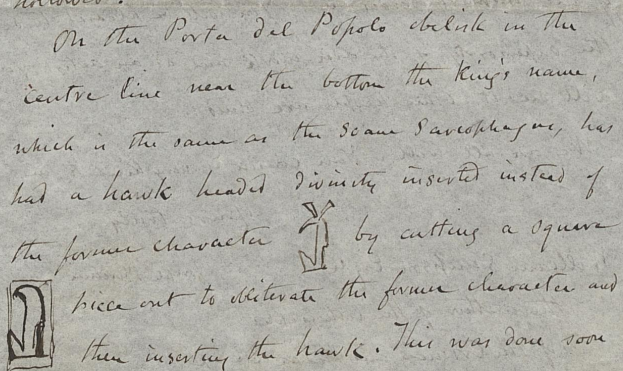 On the Porta del Popolo obelisk in the
centre line near the bottom the King's name,
which is the same as the Soane Sarcophagus, has
had a hawk headed divinity inserted instead of
the former character by cutting a square
piece out to obliterate the former character and
then inserting the hawk. This was done soon